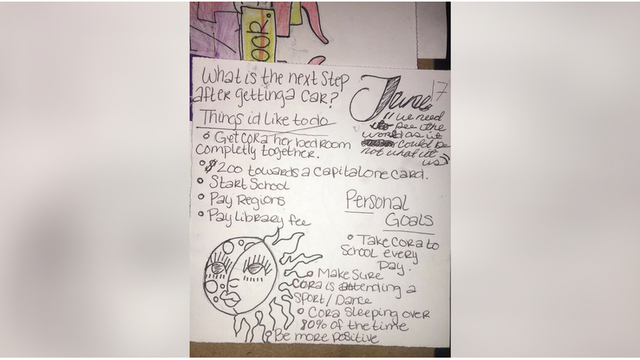 OOR.
What is the next step
after getting a car?
June 17
Things id like to do
"we need
see the
world as it
could be
not what it
is"
Get CORA her bedroom
completly together.
$200 towards a capitalone card.
Start School
Pay Regions
Pay Library fee
Personal
Goals
Take CORA to
School every
Day.
Make Sure
CORA is attending a
Sport/Dance
Cora Sleeping over
80% of the time
Be more positive